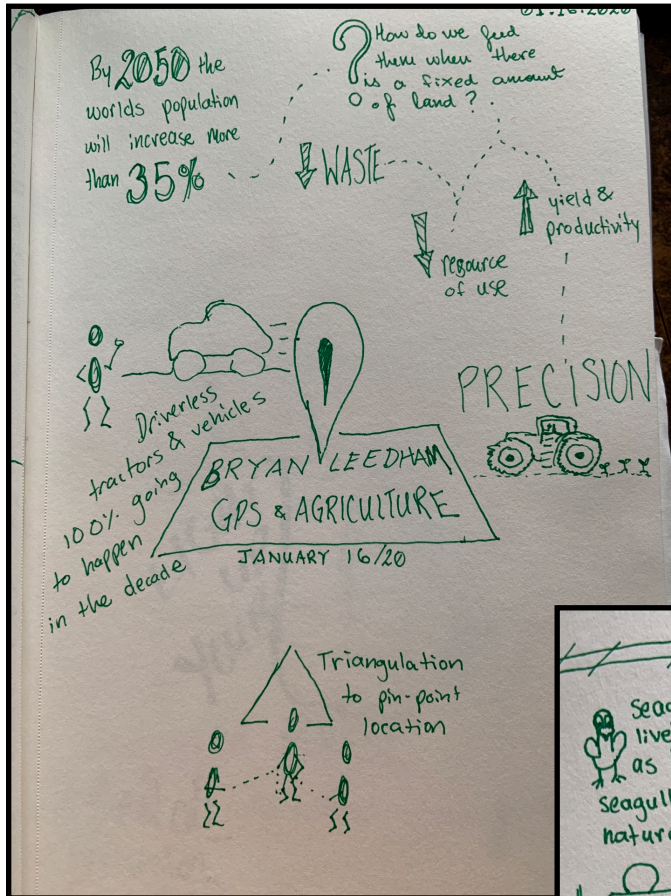 01.16.2020
By 2050 the
worlds population
will increase more
than 35%
How do we feed
them when there
is a fixed amount
of land?
WASTE
yield &
productivity
resource
of use
PRECISION
Driverless
tractors & vehicles
100% going
to happen
in the decade
BRYAN LEEDHAM
GPS & AGRICULTURE
JANUARY 16/20
Triangulation
to pin-point
location
live
as
seagull
nature